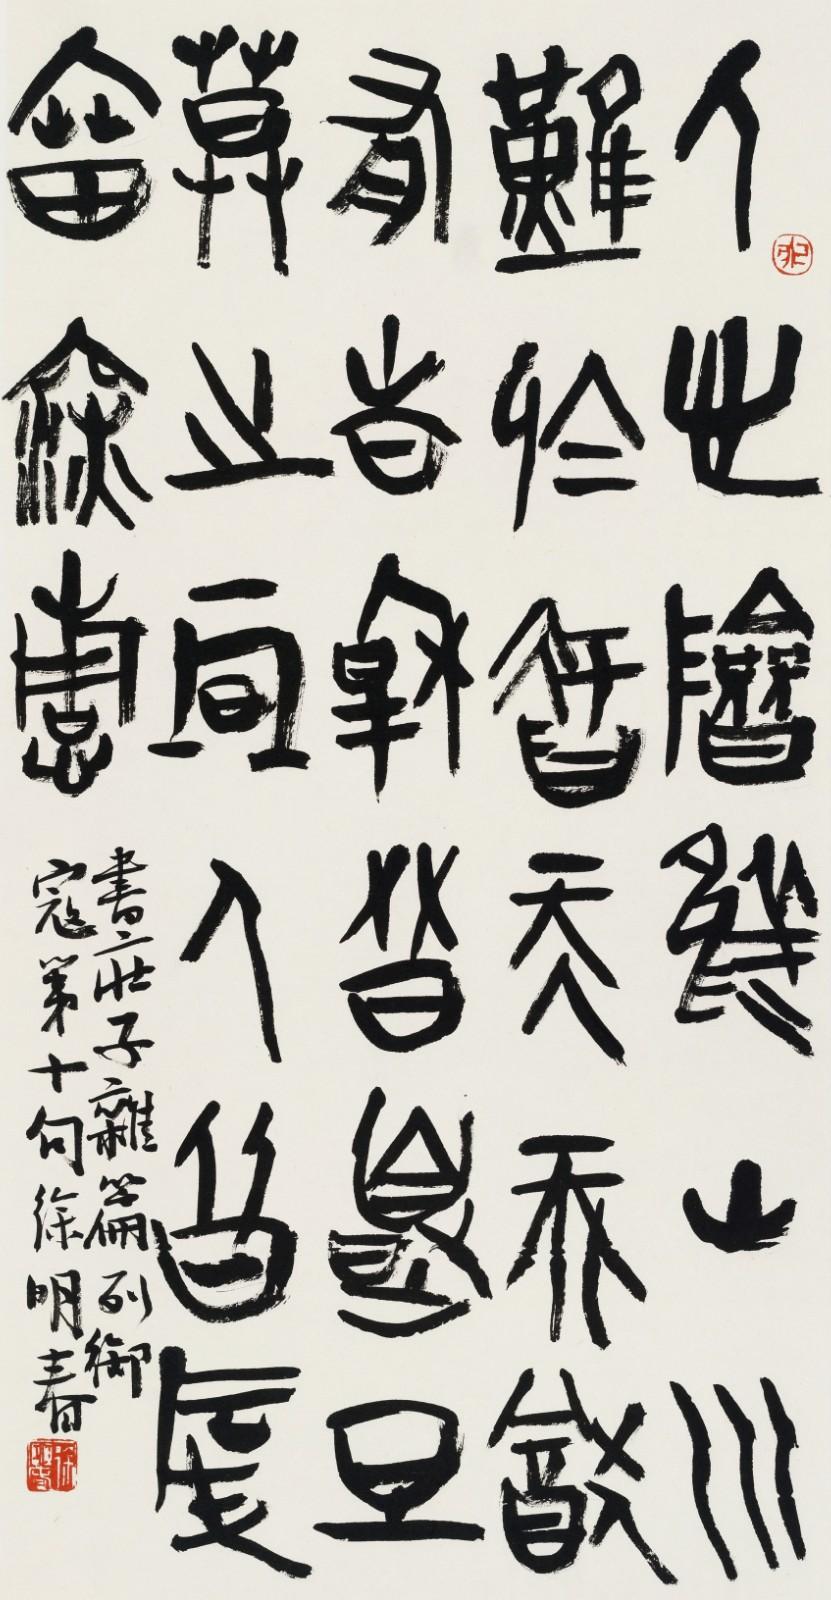 人心險於山川
難於知天天猶
有春秋冬夏旦
暮之期人者厚
貌深情
書庄子雜篇列御
寇第十句徐明春